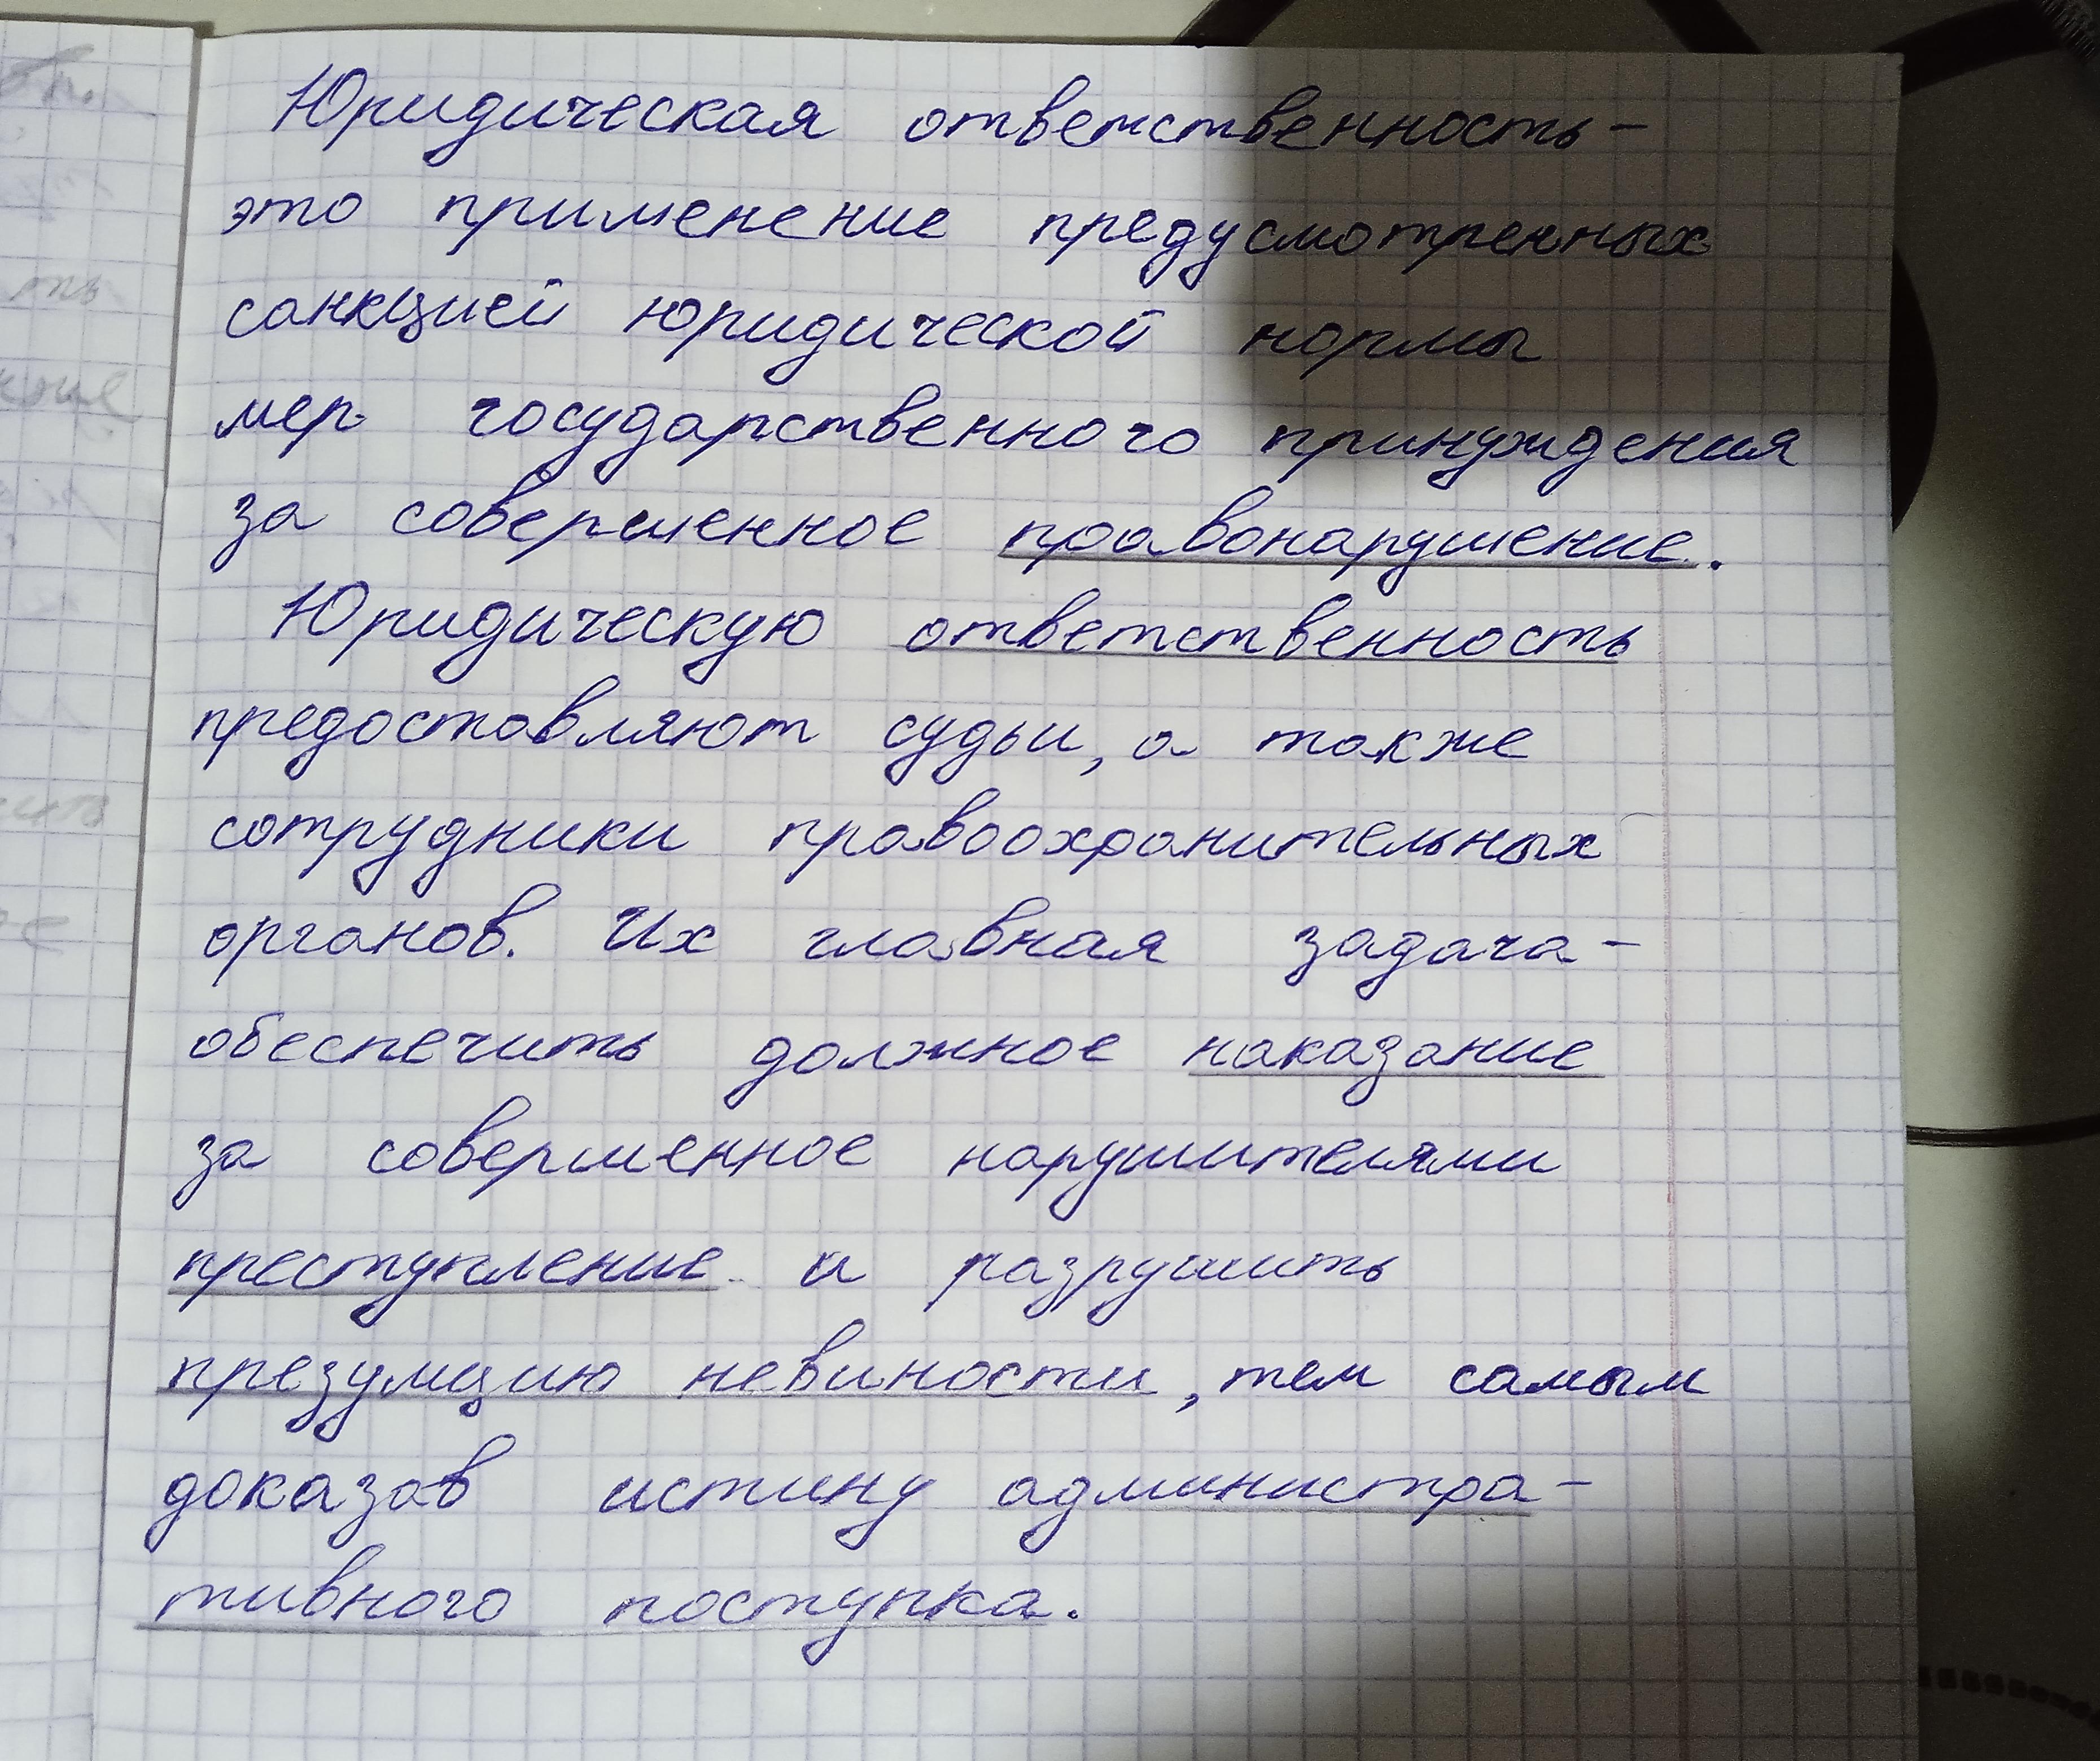 Юридическая ответственность -
это применение предусмотренных
санкцией юридической нормы
мер государственного принуждения
за совершенное правонарушение.
Юридическую ответственность
предоставляют судьи, а также
сотрудники правоохранительных
органов. Их главная задача -
обеспечить должное наказание
за совершенное нарушителями
преступление и разрушить
презумцию невиности, тем самым
доказав истину администра-
тивного поступка.